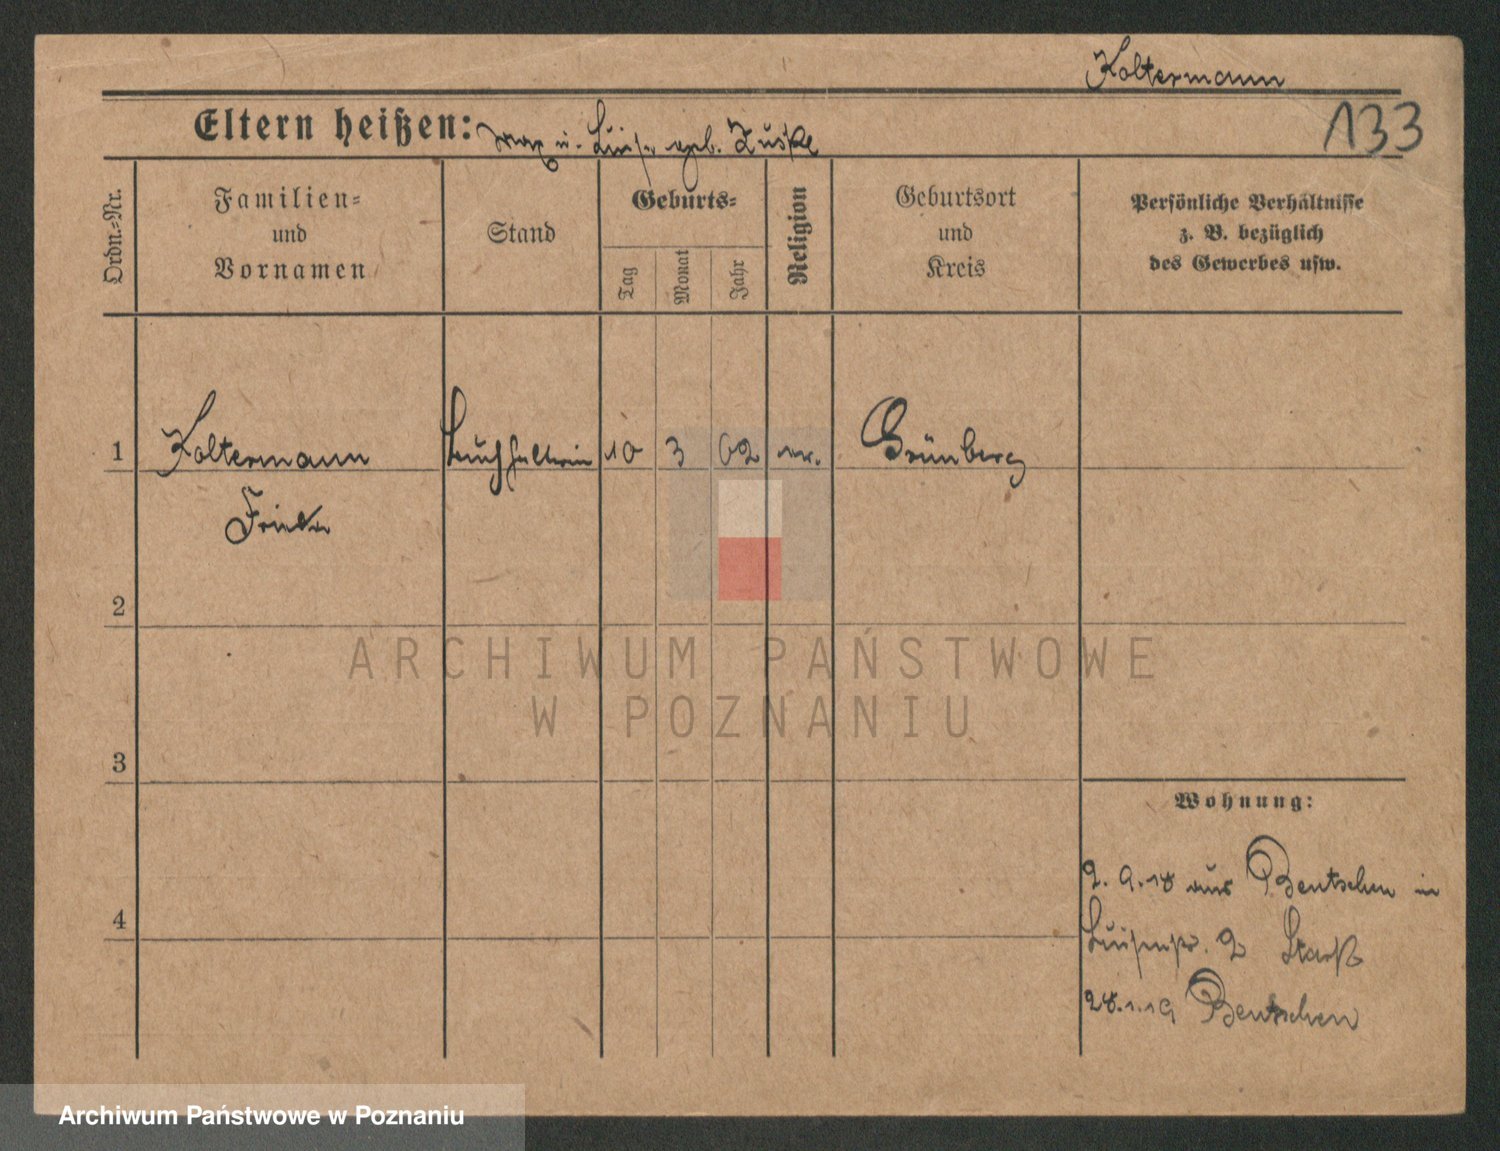 Koltermann
133
Eltern heißen: Max u. Luise geb. Zuske
Ordn.-Nr.
Familien-
und
Vornamen
Stand
Geburts-
Tag
Monat
Jahr
Religion
Geburtsort
und
Kreis
Persönliche Verhältnisse
z. B. bezüglich
des Gewerbes usw.
1 Koltermann Buchhalterin 10 3 02 ev. Grünberg
Frieda
2
3
4
Wohnung:
2.9.18 aus Bentschen in
Luisenstr. 2
28.1.19 Bentschen
ARCHIWUM PAŃSTWOWE
W POZNANIU
Archiwum Państwowe w Poznaniu